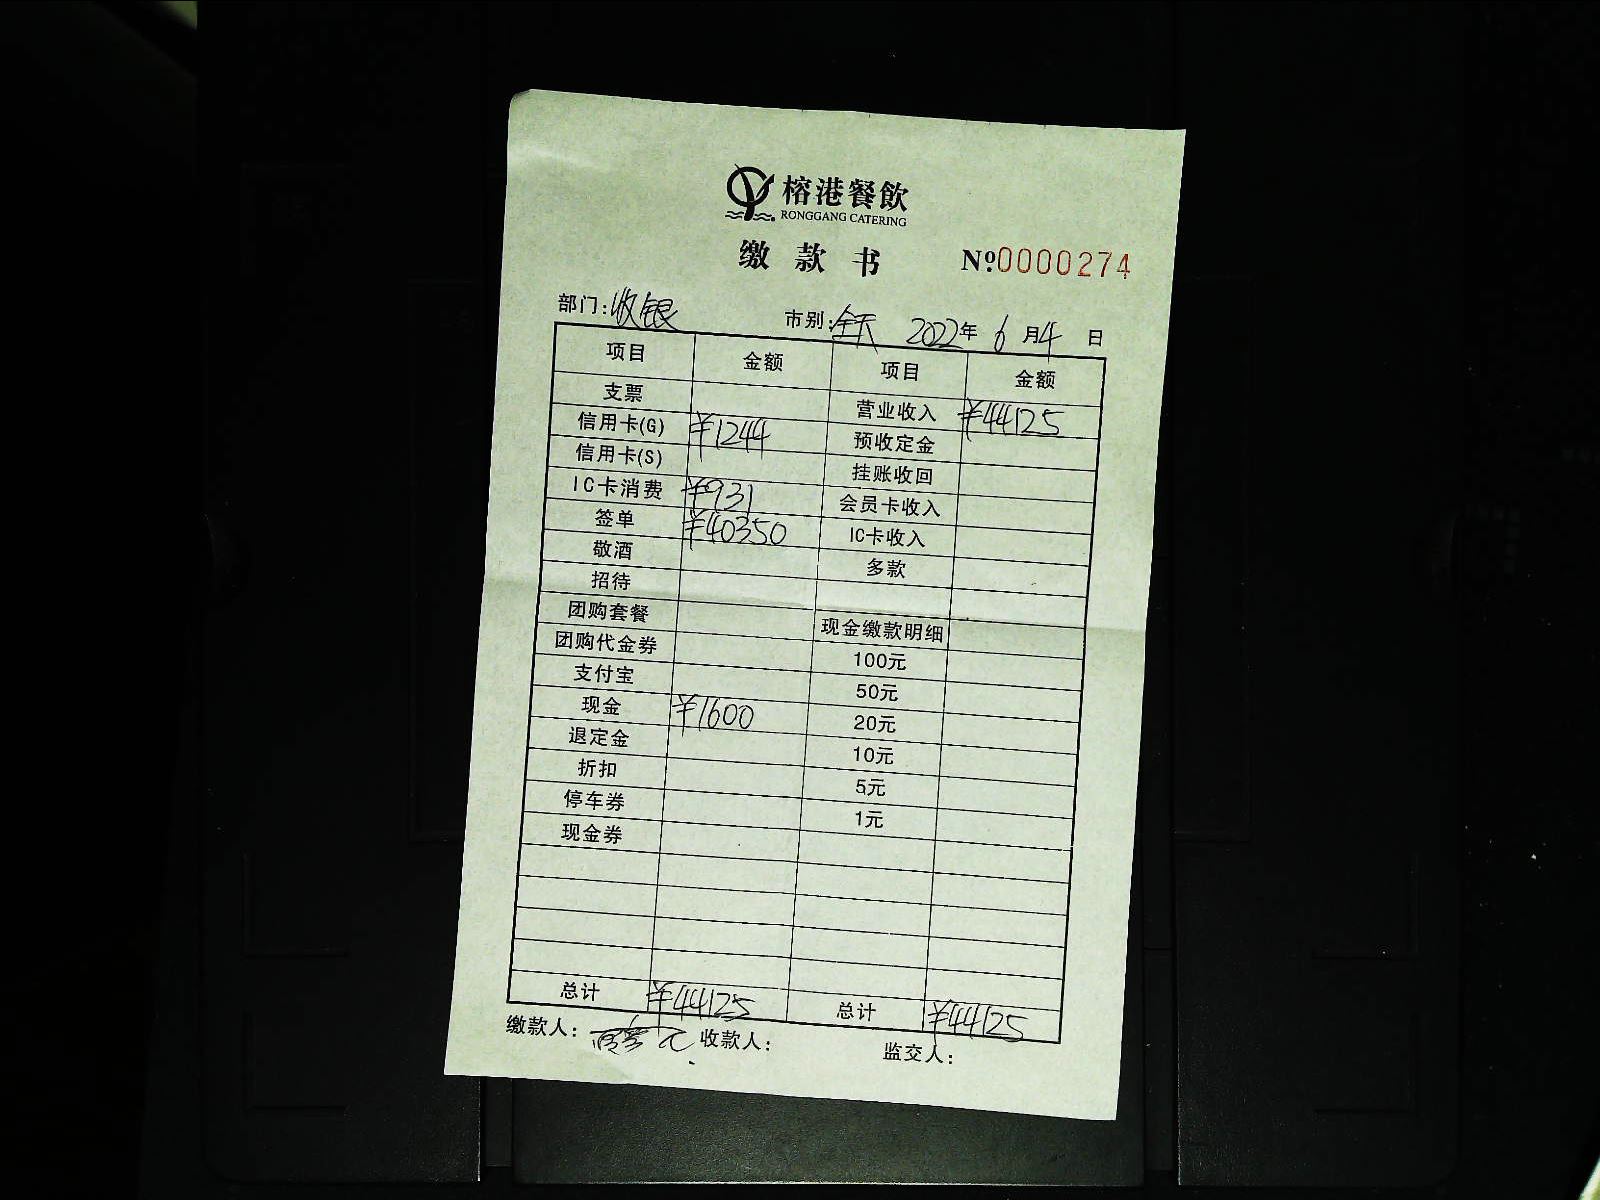 榕港餐飲
RONGGANG CATERING
缴款书 №0000274
部门:收银 市别:全天 2022年6月4日
项目 金额 项目 金额
支票 营业收入 ¥44125
信用卡(G) ¥1244 预收定金
信用卡(S) 挂账收回
IC卡消费 ¥931 会员卡收入
签单 ¥40350 IC卡收入
敬酒 多款
招待
团购套餐 现金缴款明细
团购代金券 100元
支付宝 50元
现金 ¥1600 20元
退定金 10元
折扣 5元
停车券 1元
现金券
总计 ¥44125 总计 ¥44125
缴款人: 收款人: 监交人: